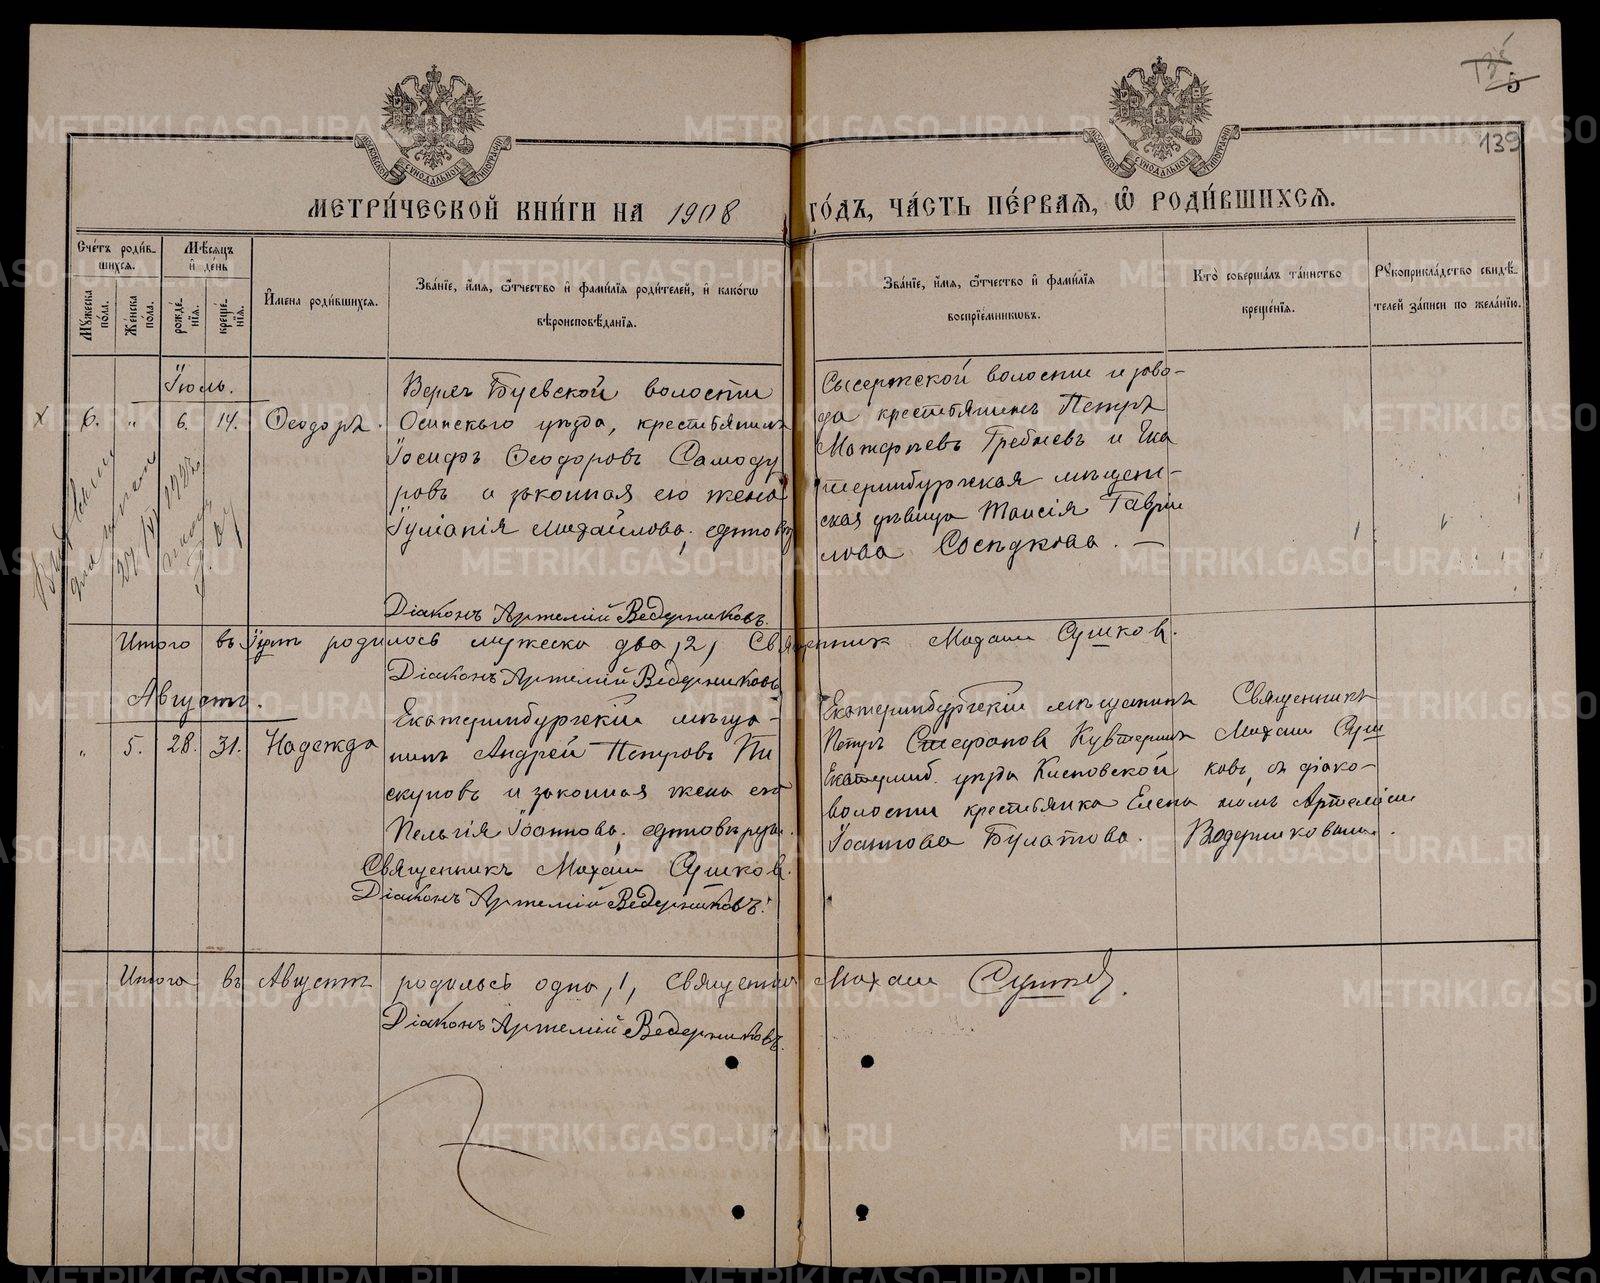 139
МОСКОВСКОЙ СУНОДАЛЬНОЙ ТИПОГРАФІИ
МОСКОВСКОЙ СУНОДАЛЬНОЙ ТИПОГРАФІИ
МЕТРИ́ЧЕСКОЙ КНИ́ГИ НА 1908 ГО́ДЪ, ЧА́СТЬ ПЕ́РВАЯ, Ѿ РОДИ́ВШИХСЯ.
Сче́тъ роди́вшихся.
Му́жеска по́ла.
Же́нска по́ла.
Мѣ́сяцъ и де́нь
рожде́нія.
креще́нія.
И́мена роди́вшихся.
Зва́ніе, и́мя, ѻ́тчество и фами́лія роди́телей, и како́гѡ вѣроисповѣ́данія.
Зва́ніе, и́мя, ѻ́тчество и фами́лія воспріе́мникѡвъ.
Кто̀ соверша́лъ та́инство креще́нія.
Рꙋкоприкла́дство свидѣ́телей за́писи по жела́нію.
Іюль.
6. „ 6. 14. Ѳеодоръ.
Верхъ Буевской волости
Осинскаго уѣзда, крестьянинъ
Іосифъ Ѳеодоровъ Самоду
ровъ и законная его жена
Іуліанія Михайлова,
Діаконъ Артемій Ведерниковъ.
Сысертской волости и заво-
да крестьянинъ Петръ
Гребневъ и Ека
теринбургская мѣщан-
ская дѣвица Таисія Гаврии
лова Сосѣдкова. —
Итого въ родилось мужеска два, 2, Священник Михаил Сушков.
Діаконъ Артемій Ведерниковъ
Августъ.
„ 5. 28. 31. Надежда
Екатеринбургскій мѣща-
нинъ Андрей Петровъ Пи
скуновъ и законная жена его
Пелагія Іоаннова,
Священникъ Михаил Сушков.
Діаконъ Артемій Ведерниковъ.
Екатеринбургскій мѣщанинъ
Петръ Стефановъ
Екатеринб. уѣзда
волости крестьянка Елена
Іоаннова Булатова.
Священникъ
Михаил Суш
ковъ, съ діако-
номъ Артеміем
Ведерниковым.
Итого въ Августѣ родилось одна, 1, Священник Михаил Сушков.
Діаконъ Артемій Ведерниковъ.
METRIKI.GASO-URAL.RU